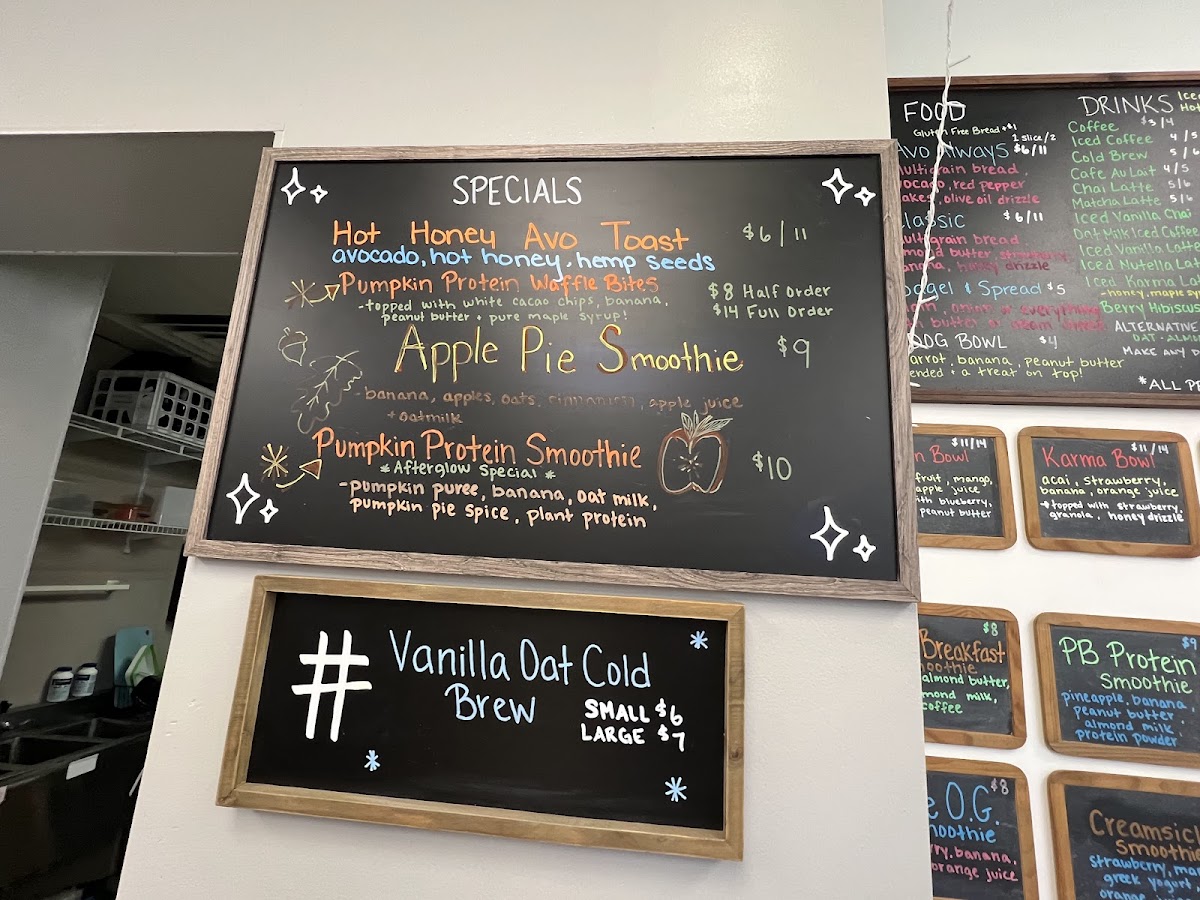 SPECIALS
Hot Honey Avo Toast $6/11
avocado, hot honey, hemp seeds
Pumpkin Protein Waffle Bites $8 Half Order
-topped with white cacao chips, banana,
peanut butter + pure maple syrup! $14 Full Order
Apple Pie Smoothie $9
-banana, apples, oats, cinnamon, apple juice
+ oatmilk
Pumpkin Protein Smoothie $10
*Afterglow Special*
-pumpkin puree, banana, oat milk,
pumpkin pie spice, plant protein
#
Vanilla Oat Cold
Brew
SMALL $6
LARGE $7
FOOD
Gluten Free Bread +$1
1 slice/2
Avo Always $6/11
multigrain bread
avocado, red pepper
flakes, olive oil drizzle
Classic $6/11
multigrain bread
almond butter, strawberry,
banana, honey drizzle
Bagel & Spread $5
DOG BOWL $4
carrot, banana, peanut butter
blended + a treat on top!
DRINKS Iced
Hot
Coffee $3/4
Iced Coffee 4/5
Cold Brew 5/6
Cafe Au Lait 4/5
Chai Latte 5/6
Matcha Latte 5/6
Iced Vanilla Chai
Oat Milk Iced Coffee
Iced Vanilla Latte
Iced Nutella Lat
Iced Karma Lat
-honey, maple sy
Berry Hibiscus
ALTERNATIVE
OAT - ALMO
MAKE ANY
*ALL PE
$11/14
n Bowl
fruit, mango,
apple juice
with blueberry,
peanut butter
$11/14
Karma Bowl
acai, strawberry,
banana, orange juice
topped with strawberry,
granola, honey drizzle
$8
Breakfast
oothie
almond butter,
mond milk,
coffee
$9
PB Protein
Smoothie
pineapple, banana,
peanut butter
almond milk
protein powder
$8
e O.G.
moothie
rry, banana,
orange juice
Creamsic
Smoothie
strawberry, ma
greek yogurt
orange juice